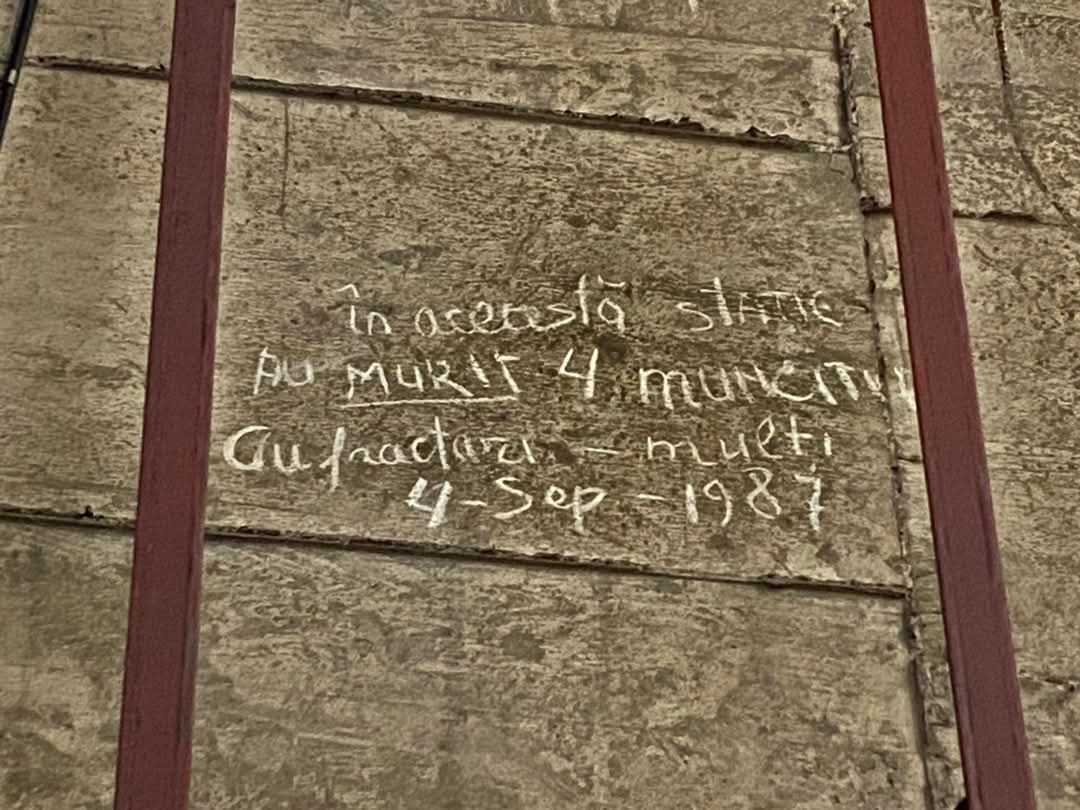 în aceeastă STATIE
AU MURIT 4 MUNCITORI
au fracturi - multi
4-Sep-1987